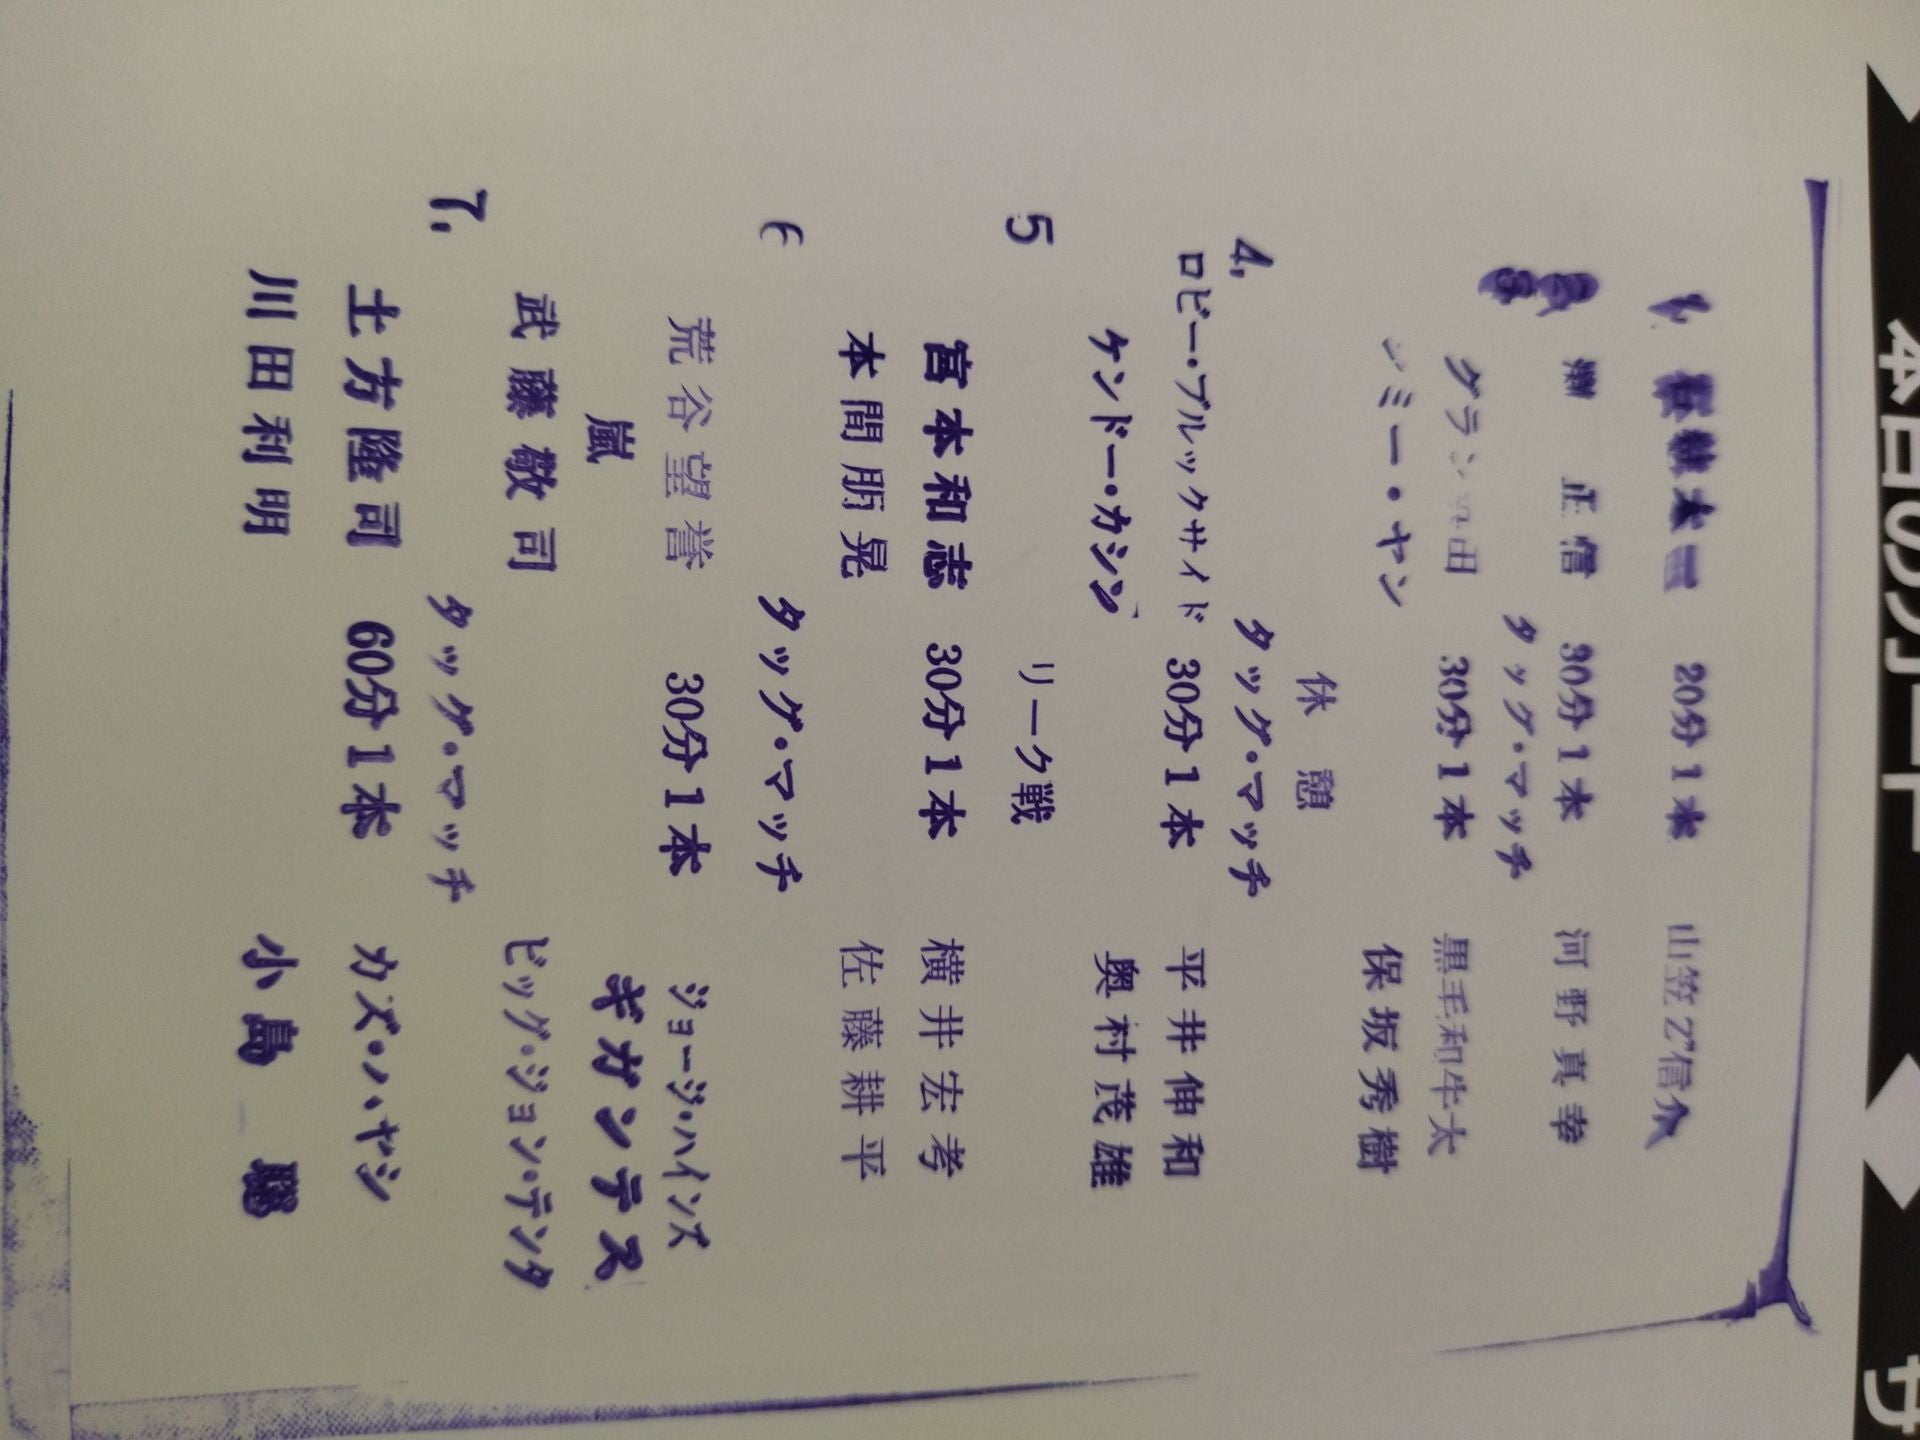 本日のカード
20分1本 山笠Z信介
渕 正信 30分1本 河野真幸
タッグ・マッチ
30分1本 黒毛和牛太
ジミー・ヤン 保坂秀樹
休憩
4. タッグ・マッチ
ロビー・ブルックサイド 30分1本 平井伸和
ケンドー・カシン 奥村茂雄
5 リーグ戦
宮本和志 30分1本 横井宏考
本間朋晃 佐藤耕平
6 タッグ・マッチ
荒谷望誉 30分1本 ジョージ・ハインズ
嵐 ギガンテス
武藤敬司 ビッグ・ジョン・テンタ
7. タッグ・マッチ
土方隆司 60分1本 カズ・ハヤシ
川田利明 小島 聡